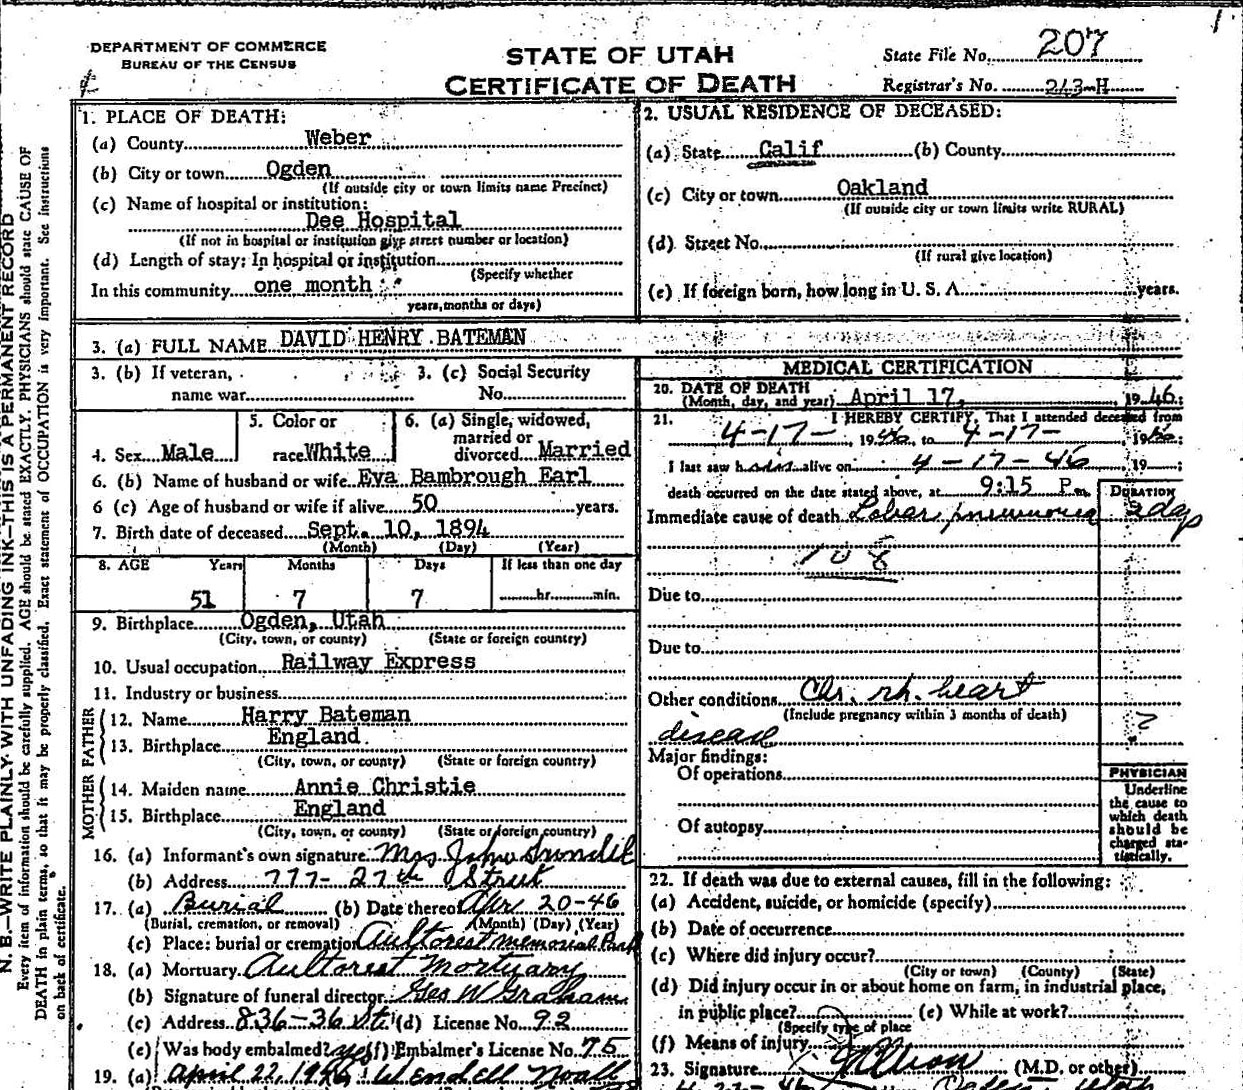 DEPARTMENT OF COMMERCE
BUREAU OF THE CENSUS
STATE OF UTAH
CERTIFICATE OF DEATH
State File No. 207
Registrar's No. 243-H
N. B.—WRITE PLAINLY WITH UNFADING INK—THIS IS A PERMANENT RECORD
Every item of information should be carefully supplied. AGE should be stated EXACTLY. PHYSICIANS should state CAUSE OF
DEATH in plain terms, so that it may be properly classified. Exact statement of OCCUPATION is very important. See instructions
on back of certificate.
1. PLACE OF DEATH:
(a) County Weber
(b) City or town Ogden
(If outside city or town limits name Precinct)
(c) Name of hospital or institution:
Dee Hospital
(If not in hospital or institution give street number or location)
(d) Length of stay: In hospital or institution
(Specify whether
In this community one month
years, months or days)
2. USUAL RESIDENCE OF DECEASED:
(a) State Calif (b) County
(c) City or town Oakland
(If outside city or town limits write RURAL)
(d) Street No.
(If rural give location)
(e) If foreign born, how long in U. S. A. years.
3. (a) FULL NAME DAVID HENRY BATEMAN
3. (b) If veteran, 3. (c) Social Security
name war No.
4. Sex Male
5. Color or
race White
6. (a) Single, widowed,
married or
divorced Married
6. (b) Name of husband or wife Eva Bambrough Earl
6 (c) Age of husband or wife if alive 50 years.
7. Birth date of deceased Sept. 10, 1894
(Month) (Day) (Year)
8. AGE Years Months Days If less than one day
51 7 7 hr. min.
9. Birthplace Ogden, Utah
(City, town, or county) (State or foreign country)
10. Usual occupation Railway Express
11. Industry or business
FATHER
12. Name Harry Bateman
13. Birthplace England
(City, town, or county) (State or foreign country)
MOTHER
14. Maiden name Annie Christie
15. Birthplace England
(City, town, or county) (State or foreign country)
16. (a) Informant's own signature Mrs John
(b) Address 777-27th Street
17. (a) Burial (b) Date thereof Apr 20-46
(Burial, cremation, or removal) (Month) (Day) (Year)
(c) Place: burial or cremation Aultorest Memorial Park
18. (a) Mortuary Aultorest Mortuary
(b) Signature of funeral director Geo W Graham
(c) Address 836-36 St. (d) License No. 92
(e) Was body embalmed? yes (f) Embalmer's License No. 75
19. (a) April 22, 1946 Wendell Noall
MEDICAL CERTIFICATION
20. DATE OF DEATH
(Month, day, and year) April 17, 1946;
21. I HEREBY CERTIFY, That I attended deceased from
4-17- 1946, to 4-17- 1946;
I last saw him alive on 4-17-46 19 ;
death occurred on the date stated above, at 9:15 P m.
DURATION
Immediate cause of death Lobar pneumonia 2 days
108
Due to
Due to
Other conditions Chr. rh. heart
(Include pregnancy within 3 months of death)
disease ?
Major findings:
Of operations
Of autopsy
PHYSICIAN
Underline
the cause to
which death
should be
charged sta-
tistically.
22. If death was due to external causes, fill in the following:
(a) Accident, suicide, or homicide (specify)
(b) Date of occurrence
(c) Where did injury occur?
(City or town) (County) (State)
(d) Did injury occur in or about home on farm, in industrial place,
in public place? (e) While at work?
(Specify type of place
(f) Means of injury
23. Signature (M.D. or other)